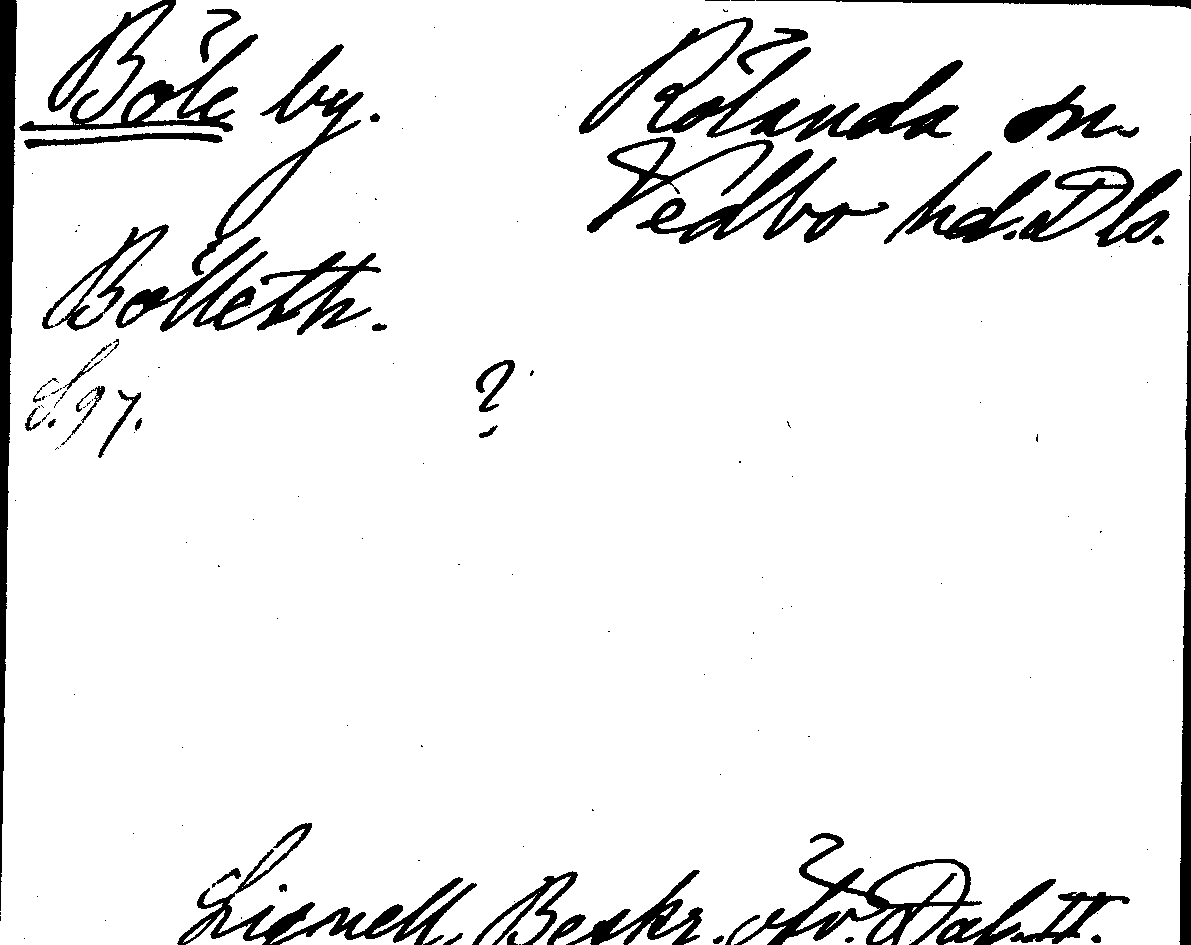 Böle by.
Rölanda sn.
Vedbo hd. Dls.
Bölleth.
S. 97.
?
Lignell, Beskr. öfv. Dal. II.